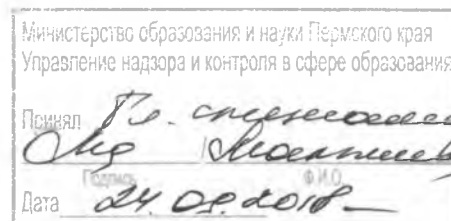 Министерство образования и науки Пермского края
Управление надзора и контроля в сфере образования
Принял Гл. специалист
Подпись Ф.И.О.
Дата 24.09.2018